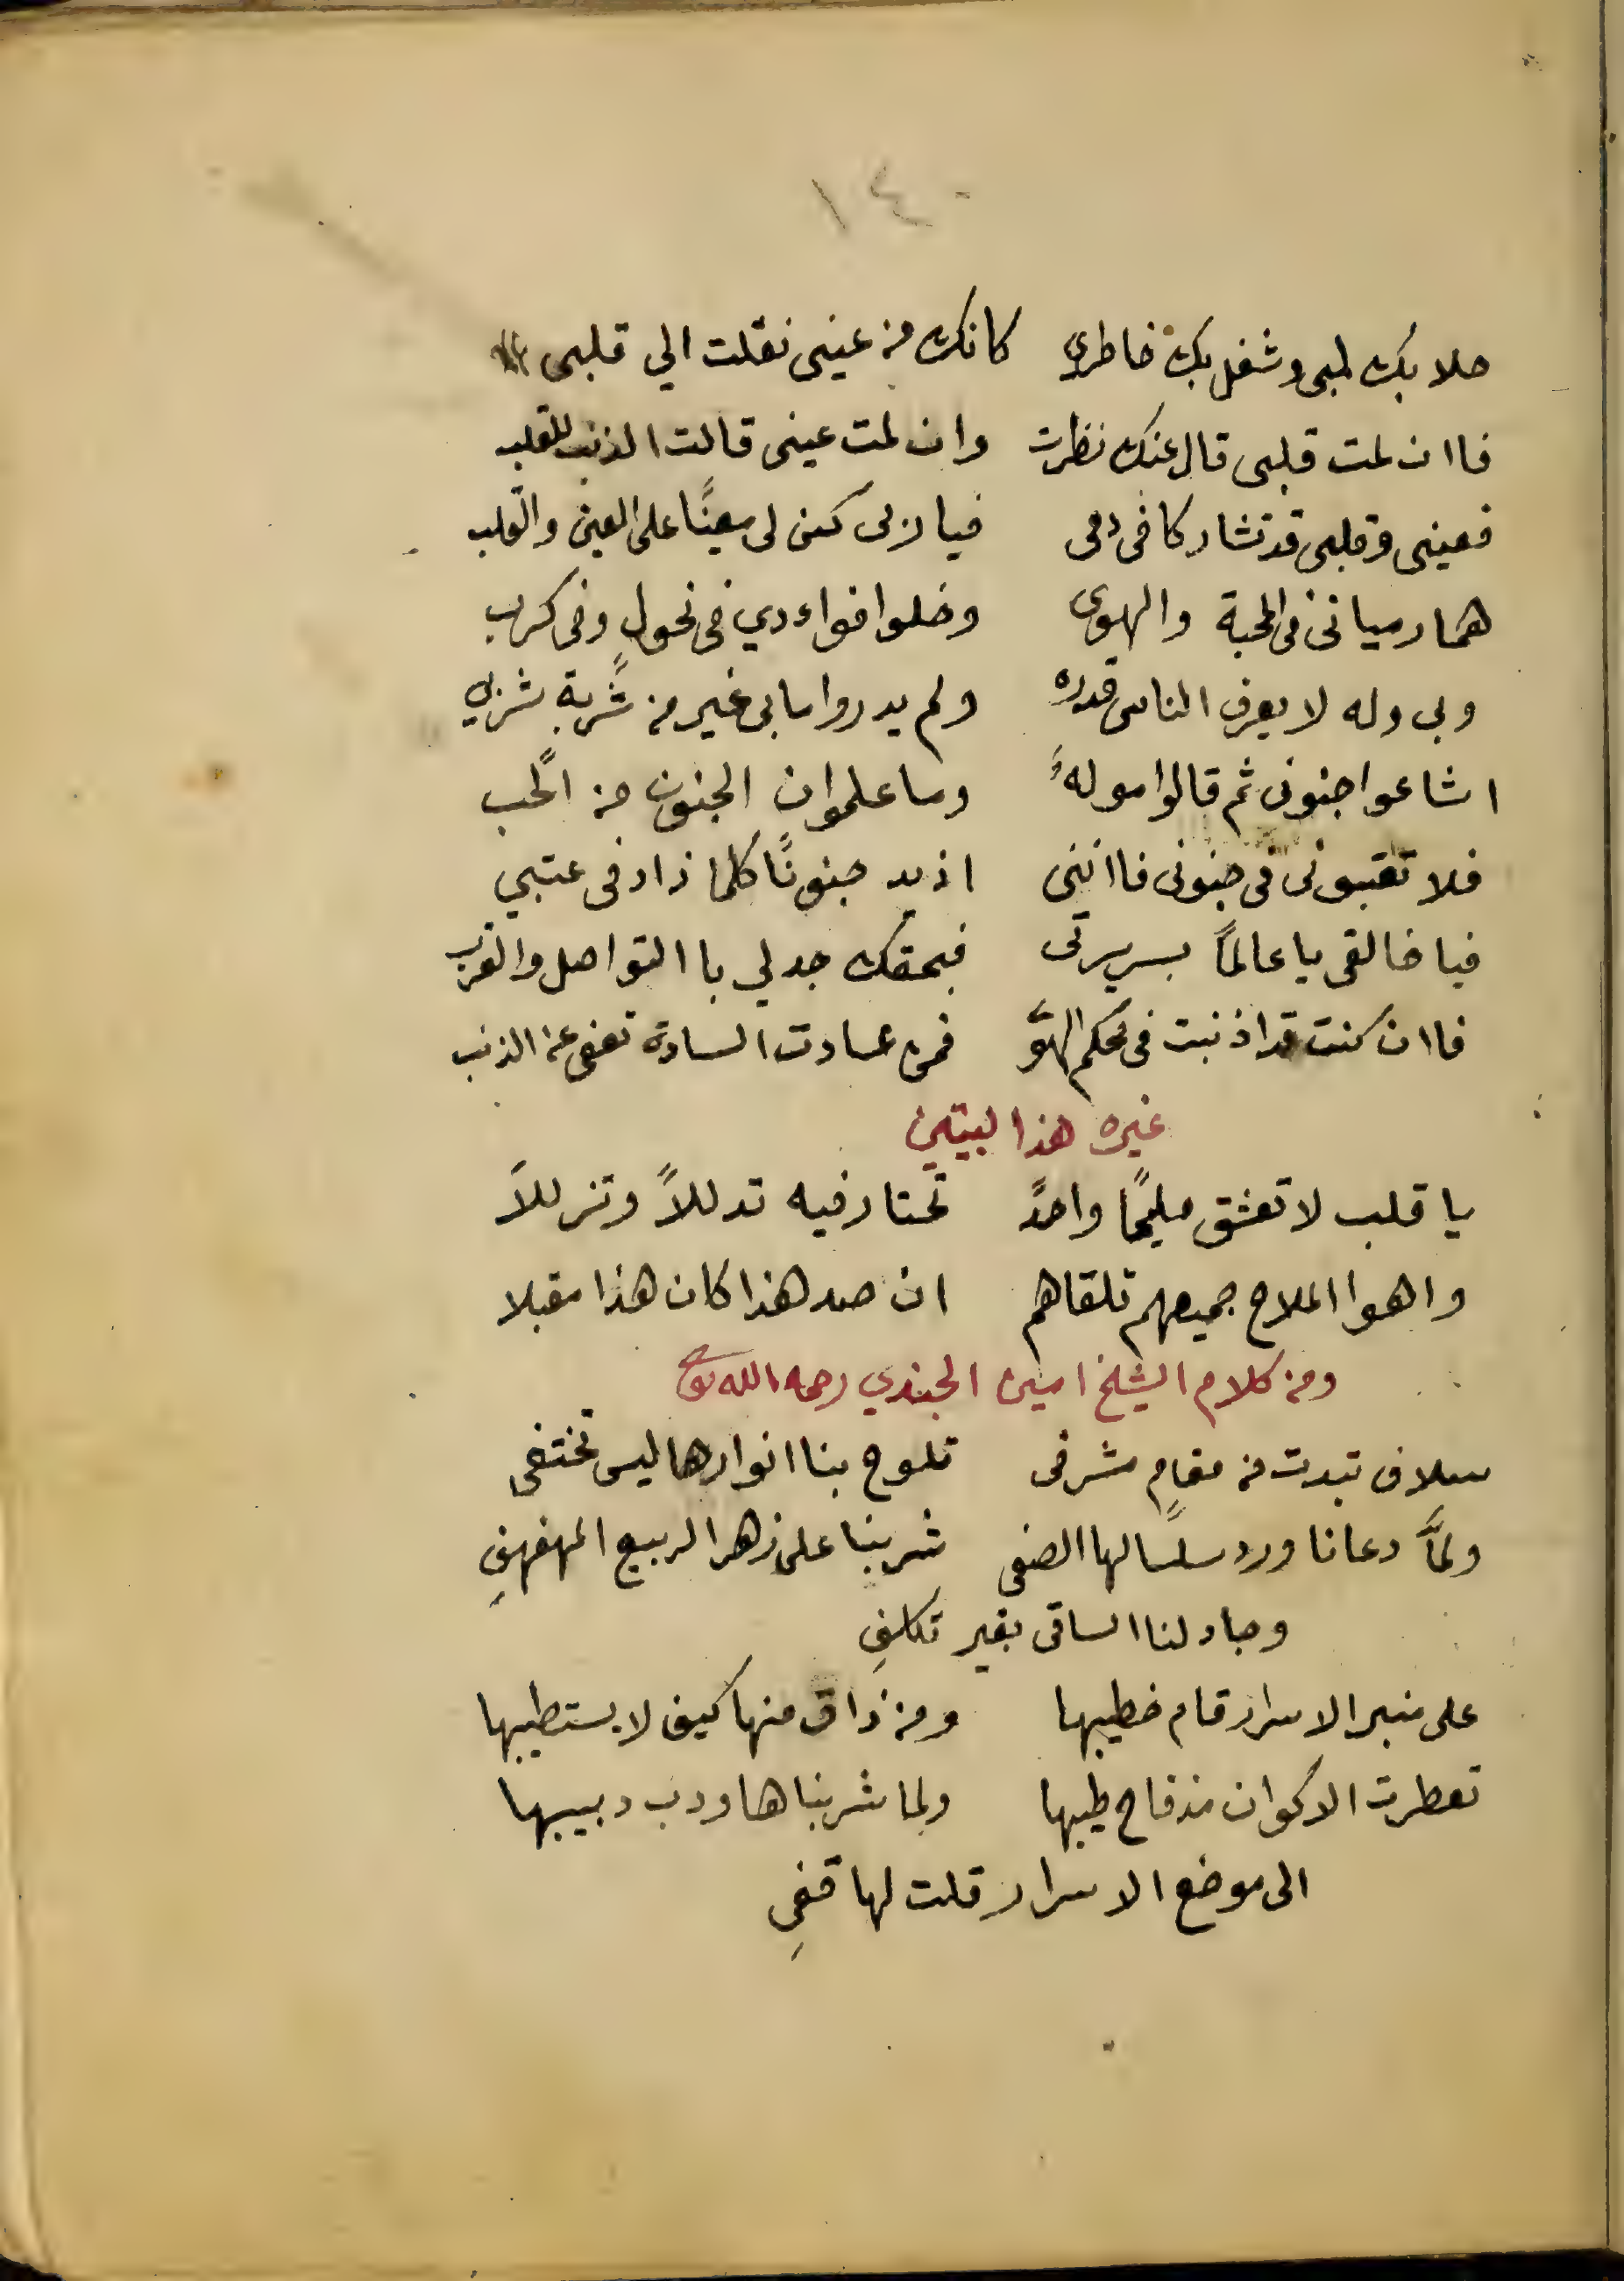 ١٤٠
حلا بك لبى وشغل بك خاطري كانك من عينى نقلت الي قلبى
فاان لمت قلبى قال عنك نظرت وان لمت عينى قالت الذنب للقلب
فعينى وقلبى قد تشاركا فى دمى فيا ربى كن لى معينًا على العين والقلب
هما رميانى فى المحبة والهوى وخلوا فواءدي فى نحولٍ وفى كرب
وبى وله لا يعرف الناس قدره ولم يدروا ما بى غير من شربة شربي
اشاعوا جنونى ثم قالوا مولهُ وما علموا ان الجنون من الحب
فلا تعتبونى فى جنونى فاانني ازيد جنونًا كلما زاد فى عتبي
فيا خالقى يا عالمًا بسريرتى فبحقك جد لي باالتواصل والقرب
فاان كنت قد اذنبت فى حكم الهوَ فمن عادت السادة تعفى عن الذنب
غيره هذا لبيتين
يا قلب لا تعشق مليحًا واحدً تحتار فيه تدللاً وتزللاَ
واهوا الملاح جميعهم تلقاهم ان صد هذا كان هذا مقبلا
ومن كلام الشيخ امين الجندي رحمه الله تع
سلاف تبدت من مقامٍ مشرفى تلوح بنا انوارها ليس تختفى
ولمَّا دعانا ورد سلسالها الصفى شربنا على زهر الربيع المهفهفِ
وجاد لنا الساقى بغير تكلفِ
على منبر الاسرار قام خطيبها ومن ذاق منها كيف لا يستطيبها
تعطرت الاكوان مذ فاح طيبها ولما شربناها ودب دبيبها
الى موضع الاسرار قلت لها قفىِ